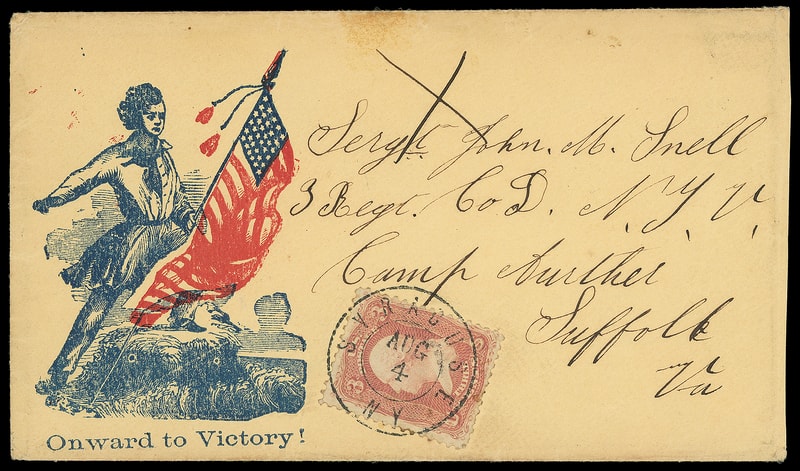 Sergt. John. M. Snell
3 Regt. Co D. N. Y. V.
Camp Aurther
Suffolk
Va
SYRACUSE N.Y.
AUG
4
Onward to Victory!